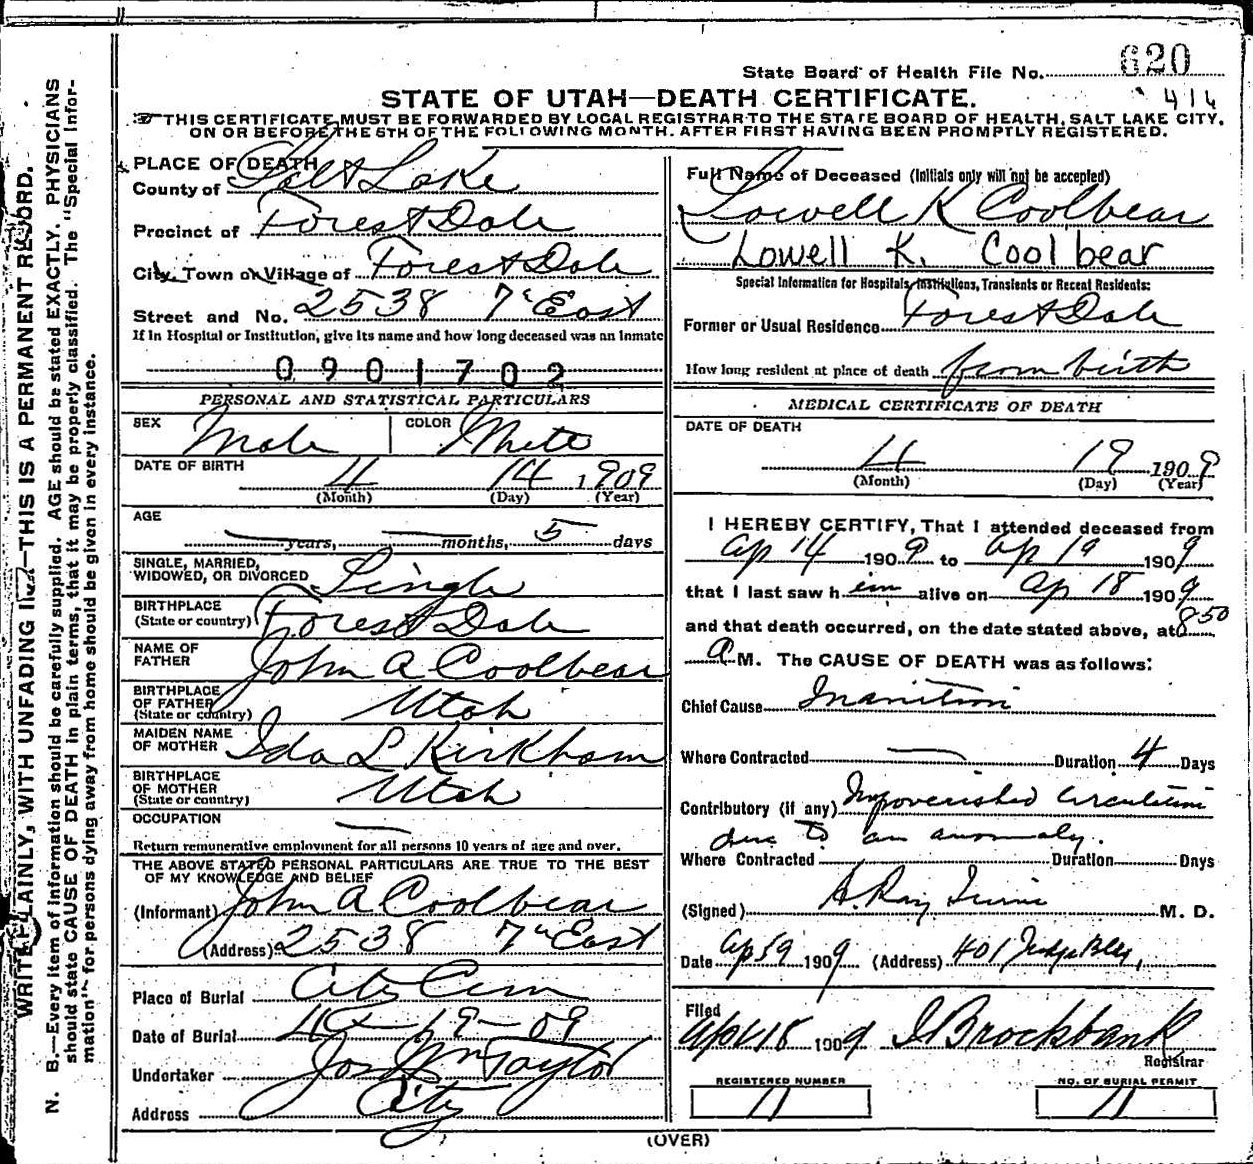 State Board of Health File No. 620
414
STATE OF UTAH—DEATH CERTIFICATE.
THIS CERTIFICATE MUST BE FORWARDED BY LOCAL REGISTRAR TO THE STATE BOARD OF HEALTH, SALT LAKE CITY,
ON OR BEFORE THE 5TH OF THE FOLLOWING MONTH. AFTER FIRST HAVING BEEN PROMPTLY REGISTERED.
WRITE PLAINLY, WITH UNFADING INK—THIS IS A PERMANENT RECORD.
N. B.—Every item of information should be carefully supplied. AGE should be stated EXACTLY. PHYSICIANS
should state CAUSE OF DEATH in plain terms, that it may be properly classified. The "Special Infor-
mation" for persons dying away from home should be given in every instance.
PLACE OF DEATH
County of Salt Lake
Precinct of Forest Dale
City, Town or Village of Forest Dale
Street and No. 2538 7th East
If in Hospital or Institution, give its name and how long deceased was an inmate
0901702
PERSONAL AND STATISTICAL PARTICULARS
SEX Male COLOR White
DATE OF BIRTH 4 14 1909
(Month) (Day) (Year)
AGE
years, months, 5 days
SINGLE, MARRIED,
WIDOWED, OR DIVORCED Single
BIRTHPLACE
(State or country) Forest Dale
NAME OF
FATHER John A Coolbear
BIRTHPLACE
OF FATHER
(State or country) Utah
MAIDEN NAME
OF MOTHER Ida L Kirkham
BIRTHPLACE
OF MOTHER
(State or country) Utah
OCCUPATION
Return remunerative employment for all persons 10 years of age and over.
THE ABOVE STATED PERSONAL PARTICULARS ARE TRUE TO THE BEST
OF MY KNOWLEDGE AND BELIEF
(Informant) John A Coolbear
(Address) 2538 7th East
Place of Burial City Cem
Date of Burial 4 - 19 - 09
Undertaker Jos Wm Taylor
Address City
Full Name of Deceased (Initials only will not be accepted)
Lowell K Coolbear
Lowell K. Coolbear
Special Information for Hospitals, Institutions, Transients or Recent Residents:
Former or Usual Residence Forest Dale
How long resident at place of death from birth
MEDICAL CERTIFICATE OF DEATH
DATE OF DEATH
4 19 1909
(Month) (Day) (Year)
I HEREBY CERTIFY, That I attended deceased from
Ap 14 1909 to Ap 19 1909
that I last saw him alive on Ap 18 1909
and that death occurred, on the date stated above, at 8:50
A M. The CAUSE OF DEATH was as follows:
Chief Cause Inanition
Where Contracted Duration 4 Days
Contributory (if any) Impoverished Circulation
due to an anomaly.
Where Contracted Duration Days
(Signed) A. Ray Irvine M. D.
Date Ap 19 1909 (Address) 401 Judge Bldg,
Filed
Apr 18 1909 I Brockbank
Registrar
REGISTERED NUMBER NO. OF BURIAL PERMIT
11 11
(OVER)